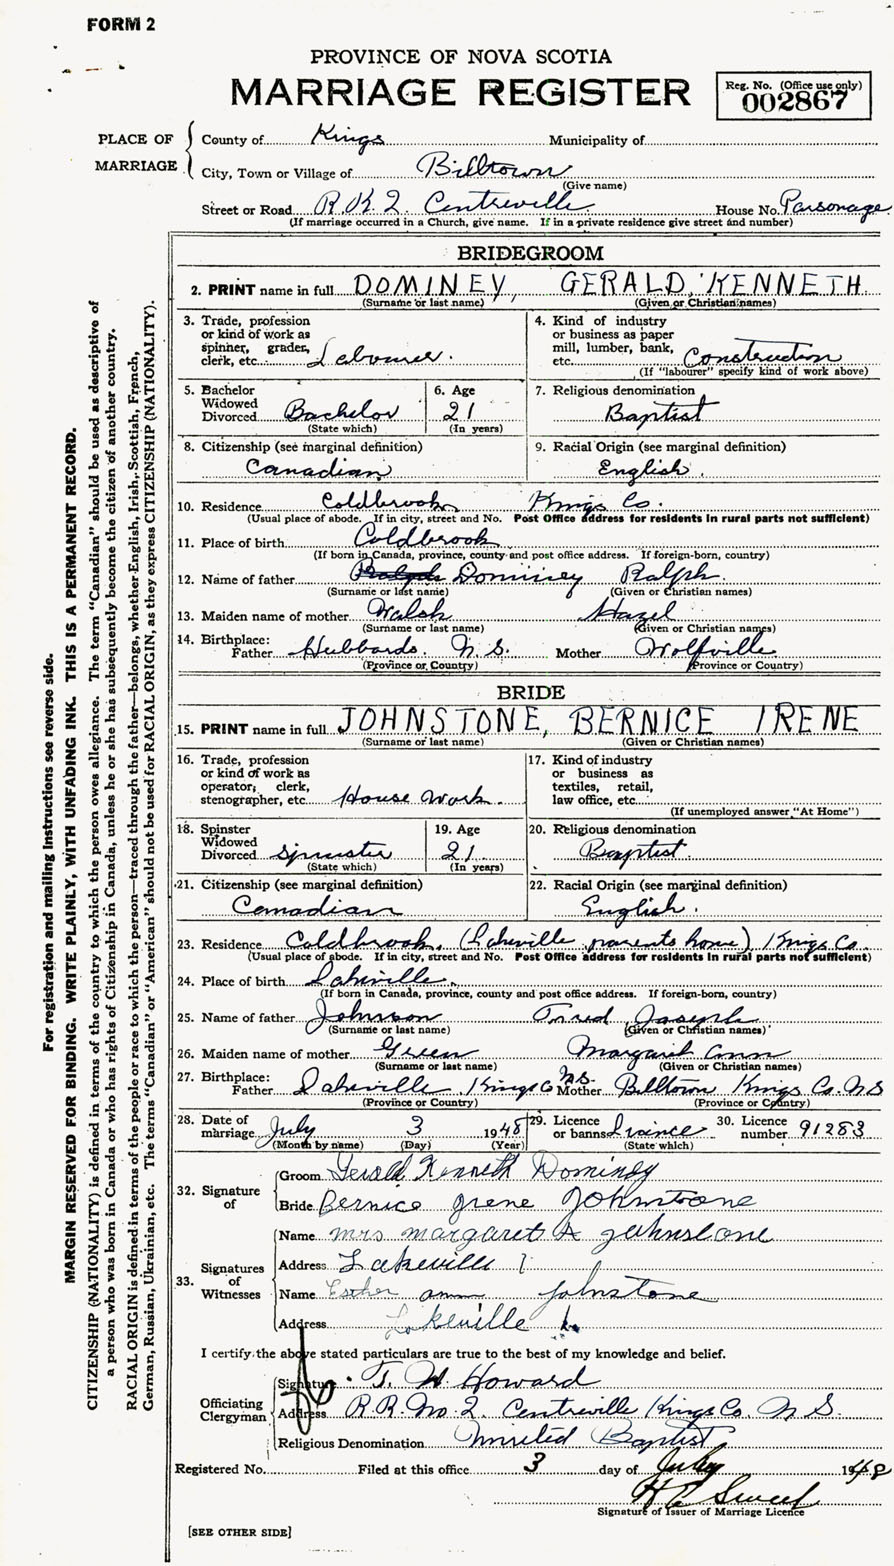 FORM 2
PROVINCE OF NOVA SCOTIA
MARRIAGE REGISTER
Reg. No. (Office use only)
002867
PLACE OF MARRIAGE
County of Kings Municipality of
City, Town or Village of Billtown
(Give name)
Street or Road R.R.2. Centreville House No. Parsonage
(If marriage occurred in a Church, give name. If in a private residence give street and number)
BRIDEGROOM
2. PRINT name in full DOMINEY, GERALD KENNETH
(Surname or last name) (Given or Christian names)
3. Trade, profession or kind of work as spinner, grader, clerk, etc. Labourer.
4. Kind of industry or business as paper mill, lumber, bank, etc. Construction
(If "labourer" specify kind of work above)
5. Bachelor Widowed Divorced Bachelor
(State which)
6. Age 21
(In years)
7. Religious denomination
Baptist
8. Citizenship (see marginal definition)
Canadian
9. Racial Origin (see marginal definition)
English.
10. Residence Coldbrook, Kings Co.
(Usual place of abode. If in city, street and No. Post Office address for residents in rural parts not sufficient)
11. Place of birth Coldbrook
(If born in Canada, province, county and post office address. If foreign-born, country)
12. Name of father Dominey Ralph
(Surname or last name) (Given or Christian names)
13. Maiden name of mother Walsh Hazel
(Surname or last name) (Given or Christian names)
14. Birthplace:
Father Hubbards. N.S. Mother Wolfville
(Province or Country) (Province or Country)
BRIDE
15. PRINT name in full JOHNSTONE, BERNICE IRENE
(Surname or last name) (Given or Christian names)
16. Trade, profession or kind of work as operator, clerk, stenographer, etc. House Work.
17. Kind of industry or business as textiles, retail, law office, etc.
(If unemployed answer "At Home")
18. Spinster Widowed Divorced Spinster
(State which)
19. Age 21.
(In years)
20. Religious denomination
Baptist.
21. Citizenship (see marginal definition)
Canadian
22. Racial Origin (see marginal definition)
English.
23. Residence Coldbrook. (Lakeville parents home) Kings Co.
(Usual place of abode. If in city, street and No. Post Office address for residents in rural parts not sufficient)
24. Place of birth Lakeville.
(If born in Canada, province, county and post office address. If foreign-born, country)
25. Name of father Johnson Joseph
(Surname or last name) (Given or Christian names)
26. Maiden name of mother Green Margaret Ann
(Surname or last name) (Given or Christian names)
27. Birthplace:
Father Lakeville, Kings Co N.S. Mother Billtown Kings Co. N.S
(Province or Country) (Province or Country)
28. Date of marriage July 3 1948
(Month by name) (Day) (Year)
29. Licence or banns
(State which)
30. Licence number 91283
32. Signature of
Groom Gerald Kenneth Dominey
Bride Bernice Irene Johnstone
33. Signatures of Witnesses
Name Mrs Margaret A Johnstone
Address Lakeville
Name Esther Ann Johnstone
Address Lakeville
I certify the above stated particulars are true to the best of my knowledge and belief.
Officiating Clergyman
Signature T. W. Howard
Address R.R. No. 2. Centreville Kings Co. N S.
Religious Denomination United Baptist
Registered No. Filed at this office 3 day of July 1948
Signature of Issuer of Marriage Licence
[SEE OTHER SIDE]
For registration and mailing instructions see reverse side.
MARGIN RESERVED FOR BINDING. WRITE PLAINLY, WITH UNFADING INK. THIS IS A PERMANENT RECORD.
CITIZENSHIP (NATIONALITY) is defined in terms of the country to which the person owes allegiance. The term "Canadian" should be used as descriptive of
a person who was born in Canada or who has rights of Citizenship in Canada, unless he or she has subsequently become the citizen of another country.
RACIAL ORIGIN is defined in terms of the people or race to which the person—traced through the father—belongs, whether English, Irish, Scottish, French,
German, Russian, Ukrainian, etc. The terms "Canadian" or "American" should not be used for RACIAL ORIGIN, as they express CITIZENSHIP (NATIONALITY).